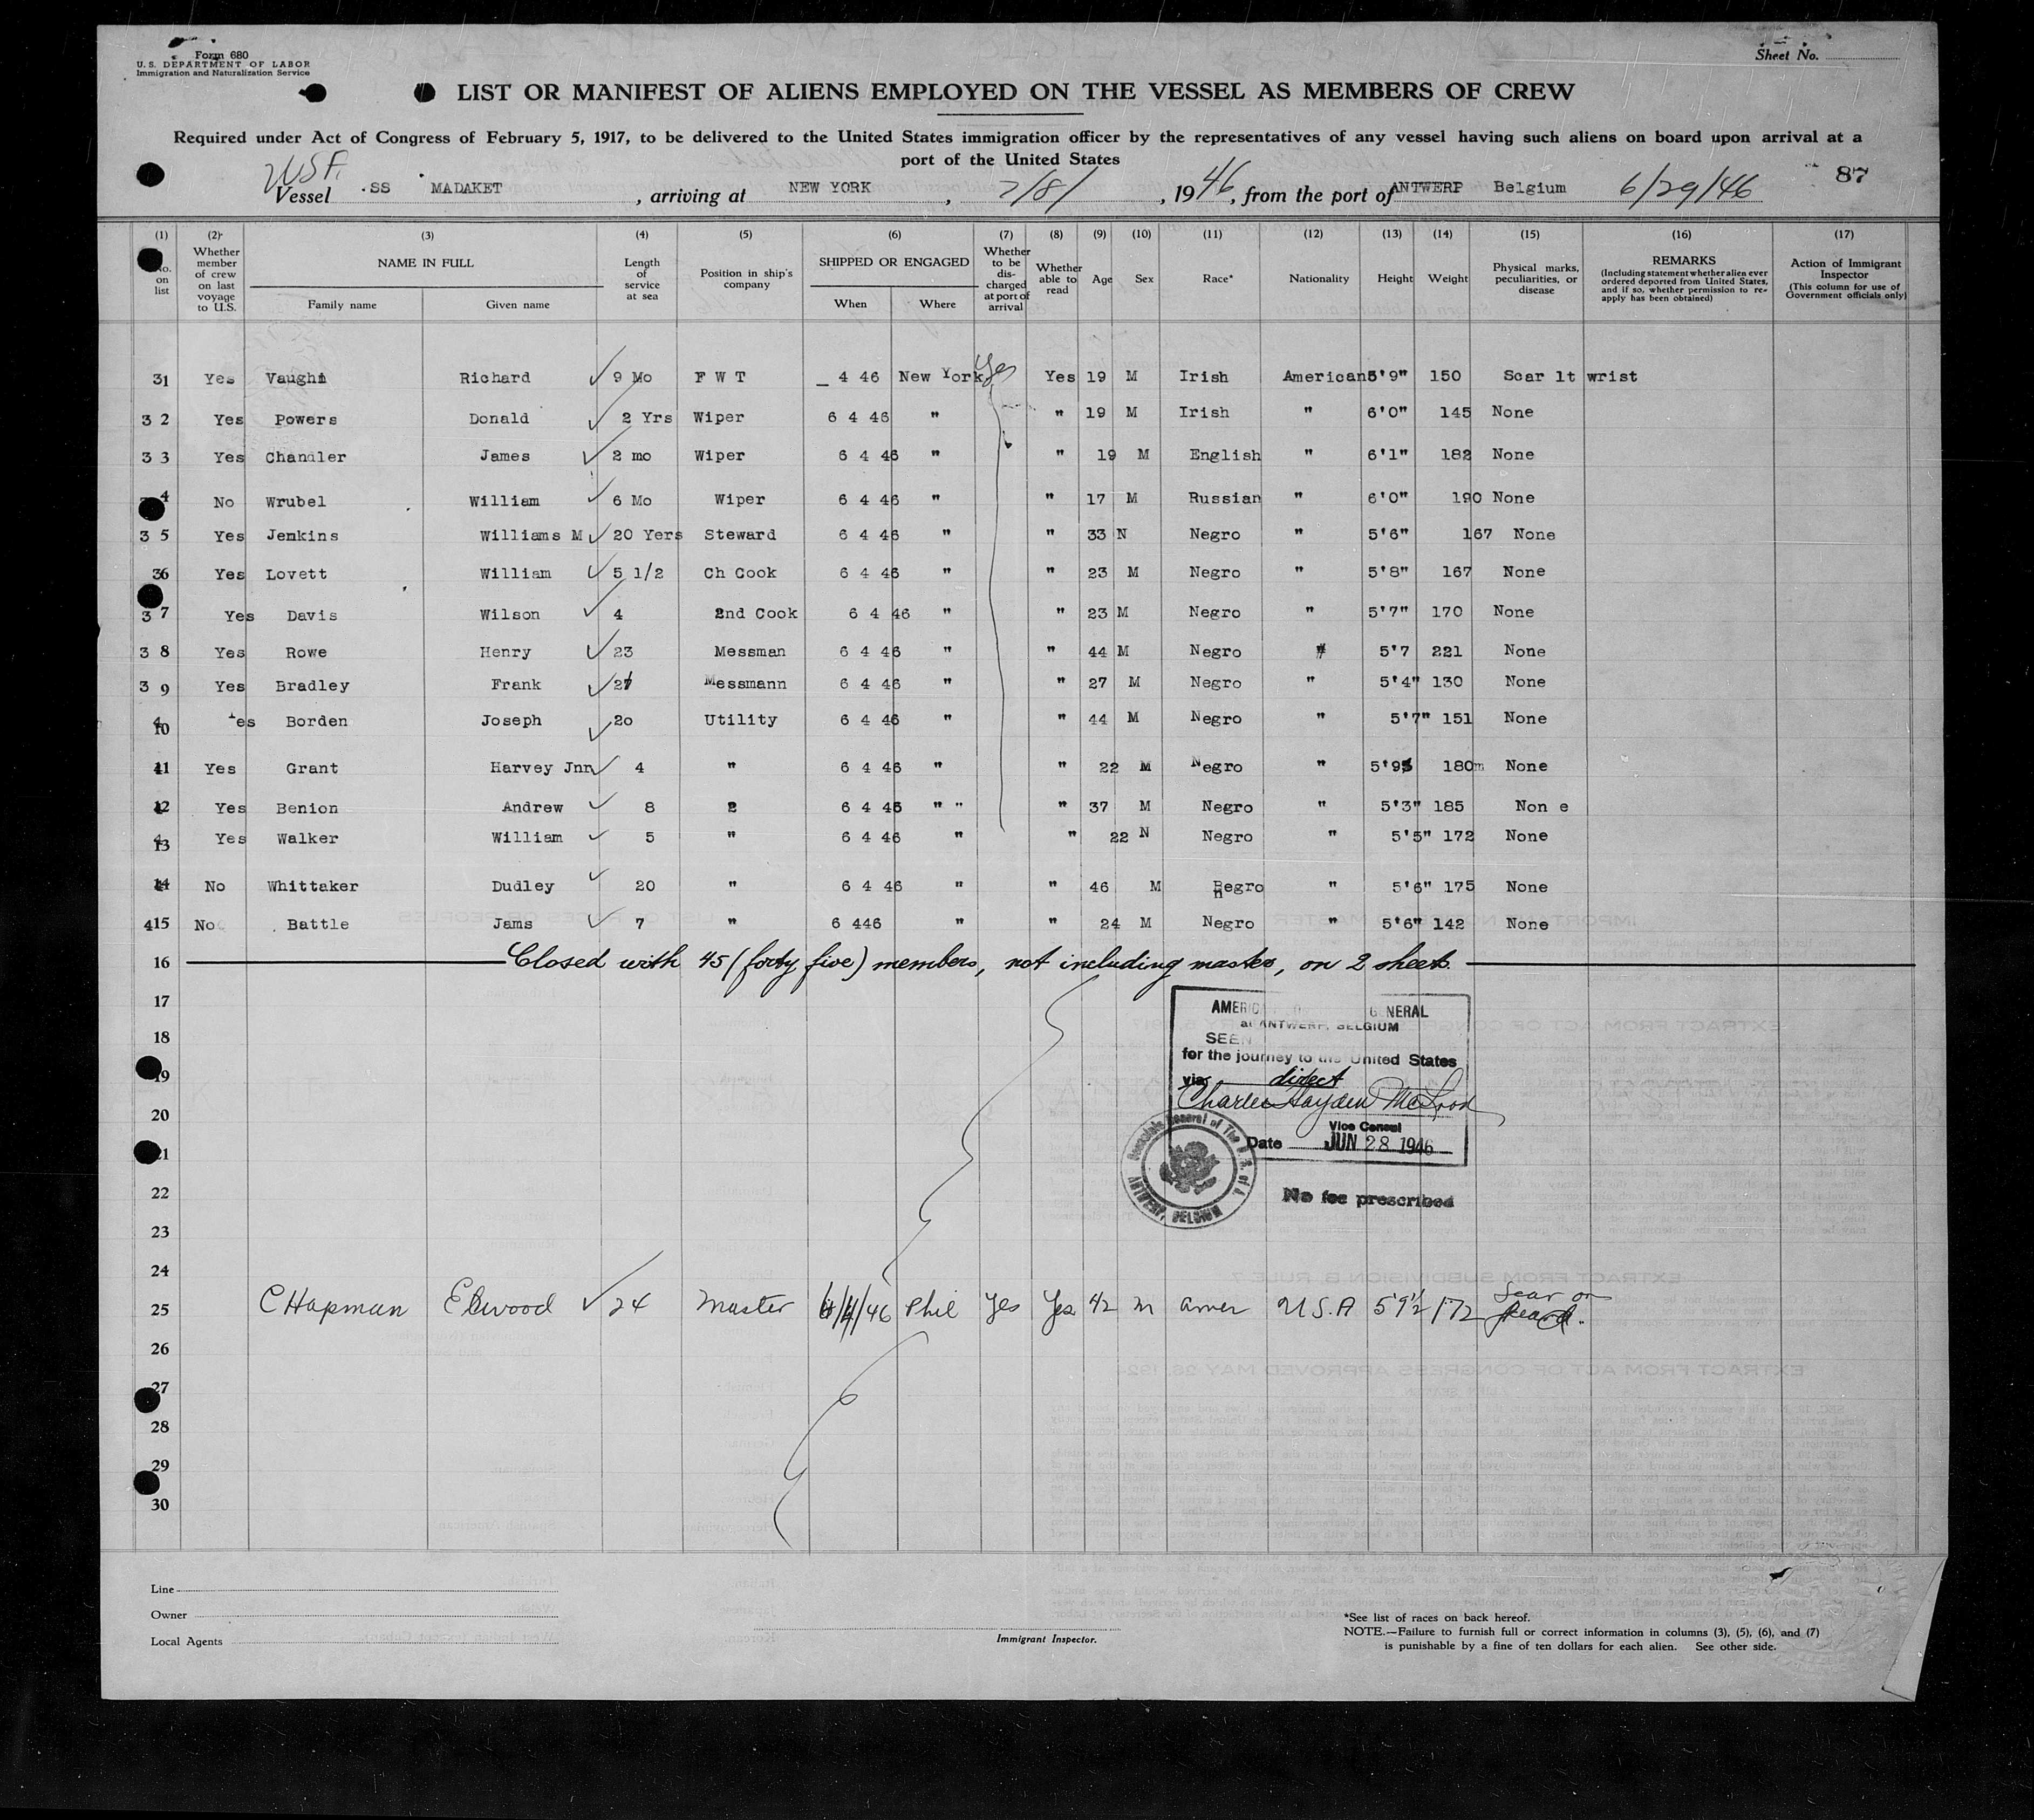 Form 680
U. S. DEPARTMENT OF LABOR
Immigration and Naturalization Service
Sheet No.
LIST OR MANIFEST OF ALIENS EMPLOYED ON THE VESSEL AS MEMBERS OF CREW
Required under Act of Congress of February 5, 1917, to be delivered to the United States immigration officer by the representatives of any vessel having such aliens on board upon arrival at a
port of the United States
87
Vessel SS MADAKET , arriving at NEW YORK , 7/8/ , 1946, from the port of ANTWERP Belgium 6/29/46
(1) (2) (3) (4) (5) (6) (7) (8) (9) (10) (11) (12) (13) (14) (15) (16) (17)
No. on list
Whether member of crew on last voyage to U.S.
NAME IN FULL
Family name Given name
Length of service at sea
Position in ship's company
SHIPPED OR ENGAGED
When Where
Whether to be discharged at port of arrival
Whether able to read
Age
Sex
Race*
Nationality
Height
Weight
Physical marks, peculiarities, or disease
REMARKS
(Including statement whether alien ever ordered deported from United States, and if so, whether permission to reapply has been obtained)
Action of Immigrant Inspector
(This column for use of Government officials only)
31 Yes Vaughn Richard 9 Mo F W T 4 46 New York Yes Yes 19 M Irish American 5'9" 150 Scar lt wrist
3 2 Yes Powers Donald 2 Yrs Wiper 6 4 46 " " 19 M Irish " 6'0" 145 None
3 3 Yes Chandler James 2 mo Wiper 6 4 46 " " 19 M English " 6'1" 182 None
4 No Wrubel William 6 Mo Wiper 6 4 46 " " 17 M Russian " 6'0" 190 None
3 5 Yes Jenkins Williams M 20 Yers Steward 6 4 46 " " 33 N Negro " 5'6" 167 None
36 Yes Lovett William 5 1/2 Ch Cook 6 4 46 " " 23 M Negro " 5'8" 167 None
3 7 Yes Davis Wilson 4 2nd Cook 6 4 46 " " 23 M Negro " 5'7" 170 None
3 8 Yes Rowe Henry 23 Messman 6 4 46 " " 44 M Negro " 5'7 221 None
3 9 Yes Bradley Frank Messmann 6 4 46 " " 27 M Negro " 5'4" 130 None
4 10 Yes Borden Joseph 20 Utility 6 4 46 " " 44 M Negro " 5'7" 151 None
41 Yes Grant Harvey Jnn 4 " 6 4 46 " " 22 M Negro " 5'9 180m None
12 Yes Benion Andrew 8 2 6 4 46 " " " 37 M Negro " 5'3" 185 Non e
4 13 Yes Walker William 5 " 6 4 46 " " 22 N Negro " 5'5" 172 None
14 No Whittaker Dudley 20 " 6 4 46 " " 46 M Negro " 5'6" 175 None
415 No Battle Jams 7 " 6 446 " " 24 M Negro " 5'6" 142 None
16 Closed with 45 (forty five) members, not including master, on 2 sheets.
17
18
19
20
21
22
23
24
AMERICAN GENERAL
at ANTWERP, BELGIUM
SEEN
for the journey to the United States
via direct
Charles Hayden McLeod
Vice Consul
Date JUN 28 1946
Consulate General of The U. S. of A.
ANTWERP, BELGIUM
No fee prescribed
25 CHapman Elwood 24 Master 6/4/46 Phil Yes Yes 42 M Amer U.S.A 5 9½ 172 Scar on
26
27
28
29
30
Line
Owner
Local Agents
Immigrant Inspector.
*See list of races on back hereof.
NOTE.—Failure to furnish full or correct information in columns (3), (5), (6), and (7)
is punishable by a fine of ten dollars for each alien. See other side.